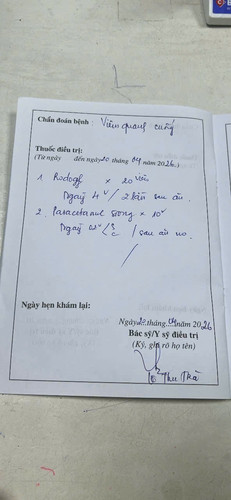 Chẩn đoán bệnh : Viêm quanh cuống
Thuốc điều trị:
(Từ ngày đến ngày 20 tháng 04 năm 2026.)
1 Rodogyl × 20 viên
Ngày 4v / 2 lần sau ăn.
2. Paracetamol 500mg × 10v
Ngày 02v / sau ăn no.
Ngày hẹn khám lại:
Ngày 20 tháng 04 năm 2026
Bác sỹ/Y sỹ điều trị
(Ký, ghi rõ họ tên)
Thu Trà